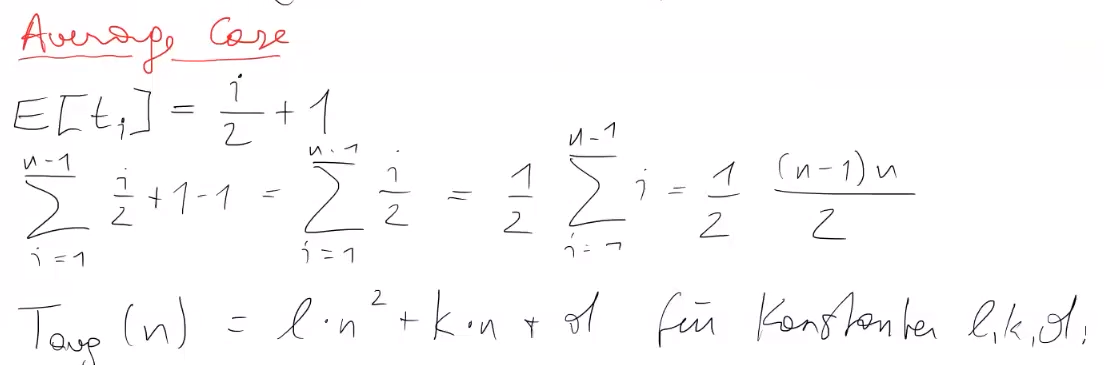 Average Case
E[t_i] = i/2 + 1
∑_{i=1}^{n-1} i/2 + 1 - 1 = ∑_{i=1}^{n-1} i/2 = 1/2 ∑_{i=1}^{n-1} i = 1/2 (n-1)n/2
T_avg (n) = l·n² + k·n + d für Konstanten l, k, d.